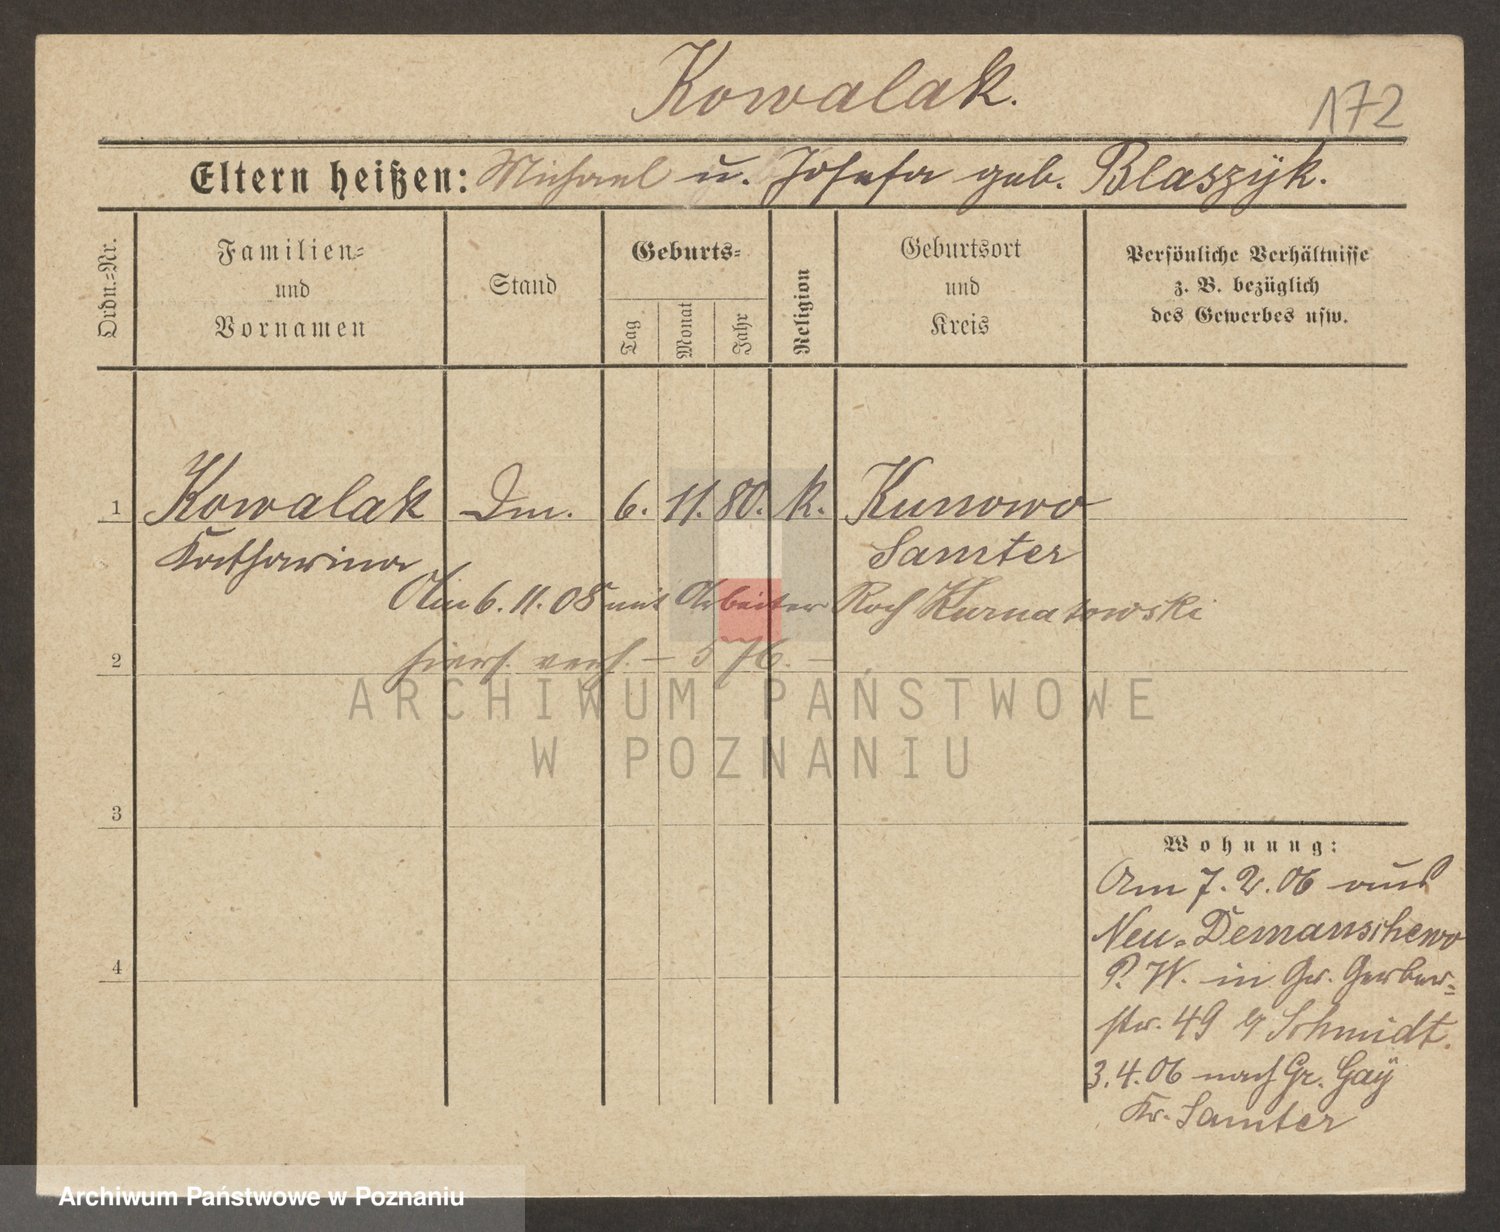 Kowalak.
172
Eltern heißen: Michael u. Josefa geb. Blaszÿk.
Ordn.-Nr.
Familien- und Vornamen
Stand
Geburts-
Tag
Monat
Jahr
Religion
Geburtsort und Kreis
Persönliche Verhältnisse
z. B. bezüglich
des Gewerbes usw.
1 Kowalak Dm. 6. 11. 80. k. Kunowo
Katharina Samter
Am 6. 11. 05 mit Arbeiter Roch Kurnatowski
2 hiers. verh. – 576. –
3
4
Wohnung:
Am 7. 2. 06 aus
Neu-Demanschewo
P. W. in Gr. Gerber-
str. 49 Schmidt.
3. 4. 06 nach Gr. Gaÿ
Kr. Samter
ARCHIWUM PAŃSTWOWE
W POZNANIU
Archiwum Państwowe w Poznaniu